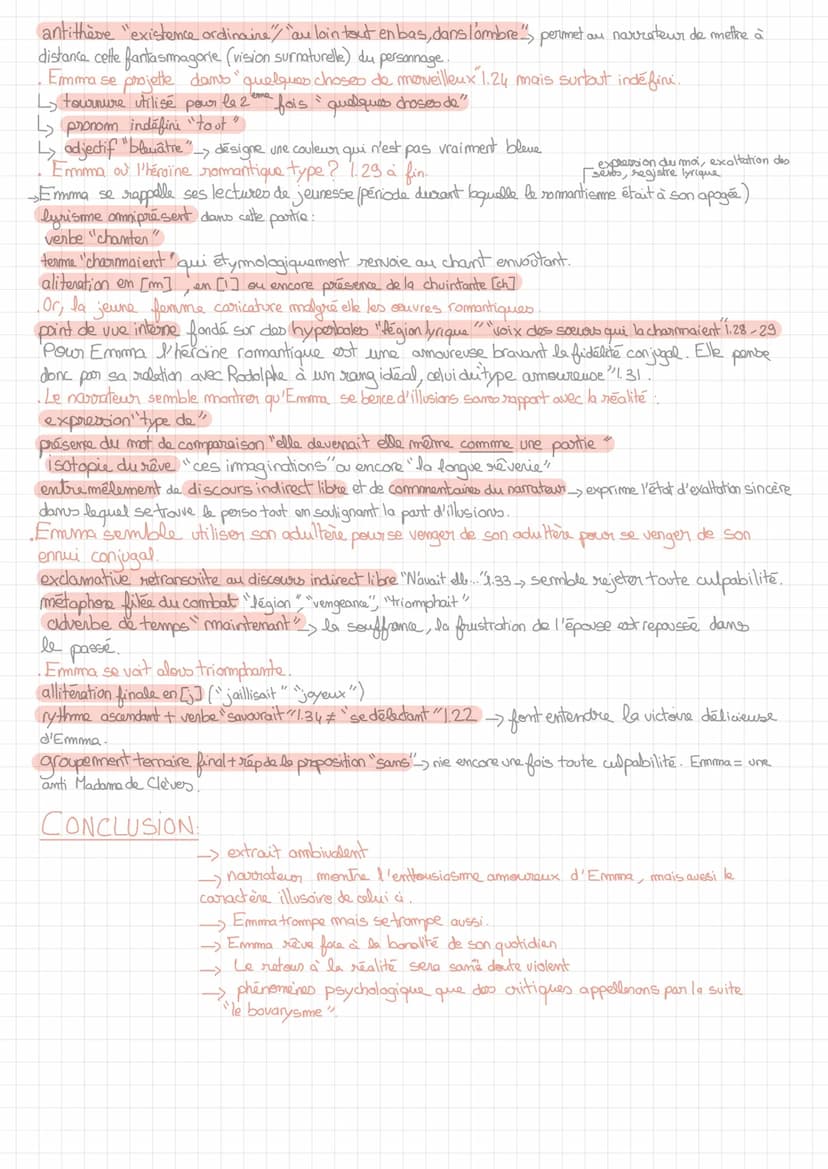 antithèse "existence ordinaire"/"au loin tout en bas, dans l'ombre" → permet au narrateur de mettre à
distance cette fantasmagorie (vision surnaturelle) du personnage.
. Emma se projette dans "quelques choses de merveilleux" l.24 mais surtout indéfini.
↳ tournure utilisé pour la 2ème fois "quelques choses de"
↳ pronom indéfini "tout"
↳ adjectif "bleuâtre" → désigne une couleur qui n'est pas vraiment bleue
. Emma où l'héroïne romantique type ? l.29 à fin.
expression du moi, exaltation des
sens, registre lyrique
→ Emma se rappelle ses lectures de jeunesse (période durant laquelle le romantisme était à son apogée)
lyrisme omniprésent dans cette partie :
verbe "chanter"
terme "charmaient" qui étymologiquement renvoie au chant envoûtant.
alitération en [m], en [l] ou encore présence de la chuintante [ch]
. Or, la jeune femme caricature malgré elle les oeuvres romantiques.
point de vue interne fondé sur des hyperboles "légion lyrique" "voix des soeurs qui la charmaient" l.28-29
Pour Emma l'héroïne romantique est une amoureuse bravant la fidélité conjugal. Elle pense
donc par sa relation avec Rodolphe à un rang idéal, celui du "type amoureuse" l.31.
. Le narrateur semble montrer qu'Emma se berce d'illusions sans rapport avec la réalité :
expression "type de"
présence du mot de comparaison "elle devenait elle même comme une partie"
isotopie du rêve "ces imaginations" ou encore "la longue rêverie"
entremêlement de discours indirect libre et de commentaires du narrateur → exprime l'état d'exaltation sincère
dans lequel se trouve le perso tout en soulignant la part d'illusions.
. Emma semble utiliser son adultère pour se venger de son adultère pour se venger de son
ennui conjugal.
exclamative retranscrite au discours indirect libre "N'avait elle..." l.33 → semble rejeter toute culpabilité.
métaphore filée du combat "légion", "vengeance", "triomphait"
adverbe de temps "maintenant" → la souffrance, la frustration de l'épouse est repoussée dans
le passé.
. Emma se voit alors triomphante.
allitération finale en [j] ("jaillisait" "joyeux")
rythme ascendant + verbe "savourait" l.34 ≠ "se délectant" l.22 → font entendre la victoire délicieuse
d'Emma.
groupement ternaire final + rép de la proposition "sans" → nie encore une fois toute culpabilité. Emma = une
anti Madame de Clèves.
CONCLUSION:
→ extrait ambivalent
→ narrateur montre l'enthousiasme amoureux d'Emma, mais aussi le
caractère illusoire de celui ci.
→ Emma trompe mais se trompe aussi.
→ Emma rêve face à la banalité de son quotidien
→ Le retour à la réalité sera sans doute violent
→ phénomènes psychologique que des critiques appellerons par la suite
"le bovarysme".